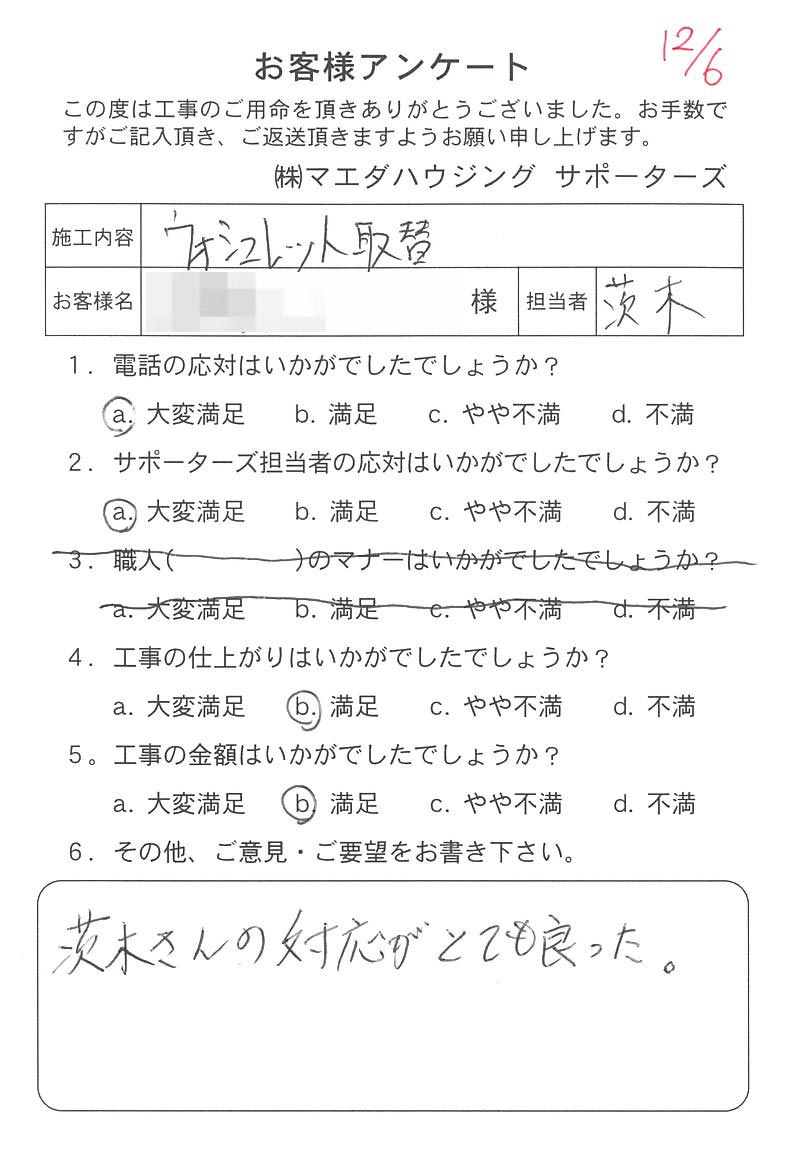 12/6
お客様アンケート
この度は工事のご用命を頂きありがとうございました。お手数で
すがご記入頂き、ご返送頂きますようお願い申し上げます。
㈱マエダハウジング サポーターズ
施工内容 ウォシュレット取替
お客様名 様 担当者 茨木
1. 電話の応対はいかがでしたでしょうか？
a. 大変満足 b. 満足 c. やや不満 d. 不満
2. サポーターズ担当者の応対はいかがでしたでしょうか？
a. 大変満足 b. 満足 c. やや不満 d. 不満
3. 職人( )のマナーはいかがでしたでしょうか？
a. 大変満足 b. 満足 c. やや不満 d. 不満
4. 工事の仕上がりはいかがでしたでしょうか？
a. 大変満足 b. 満足 c. やや不満 d. 不満
5。工事の金額はいかがでしたでしょうか？
a. 大変満足 b. 満足 c. やや不満 d. 不満
6. その他、ご意見・ご要望をお書き下さい。
茨木さんの対応がとても良った。